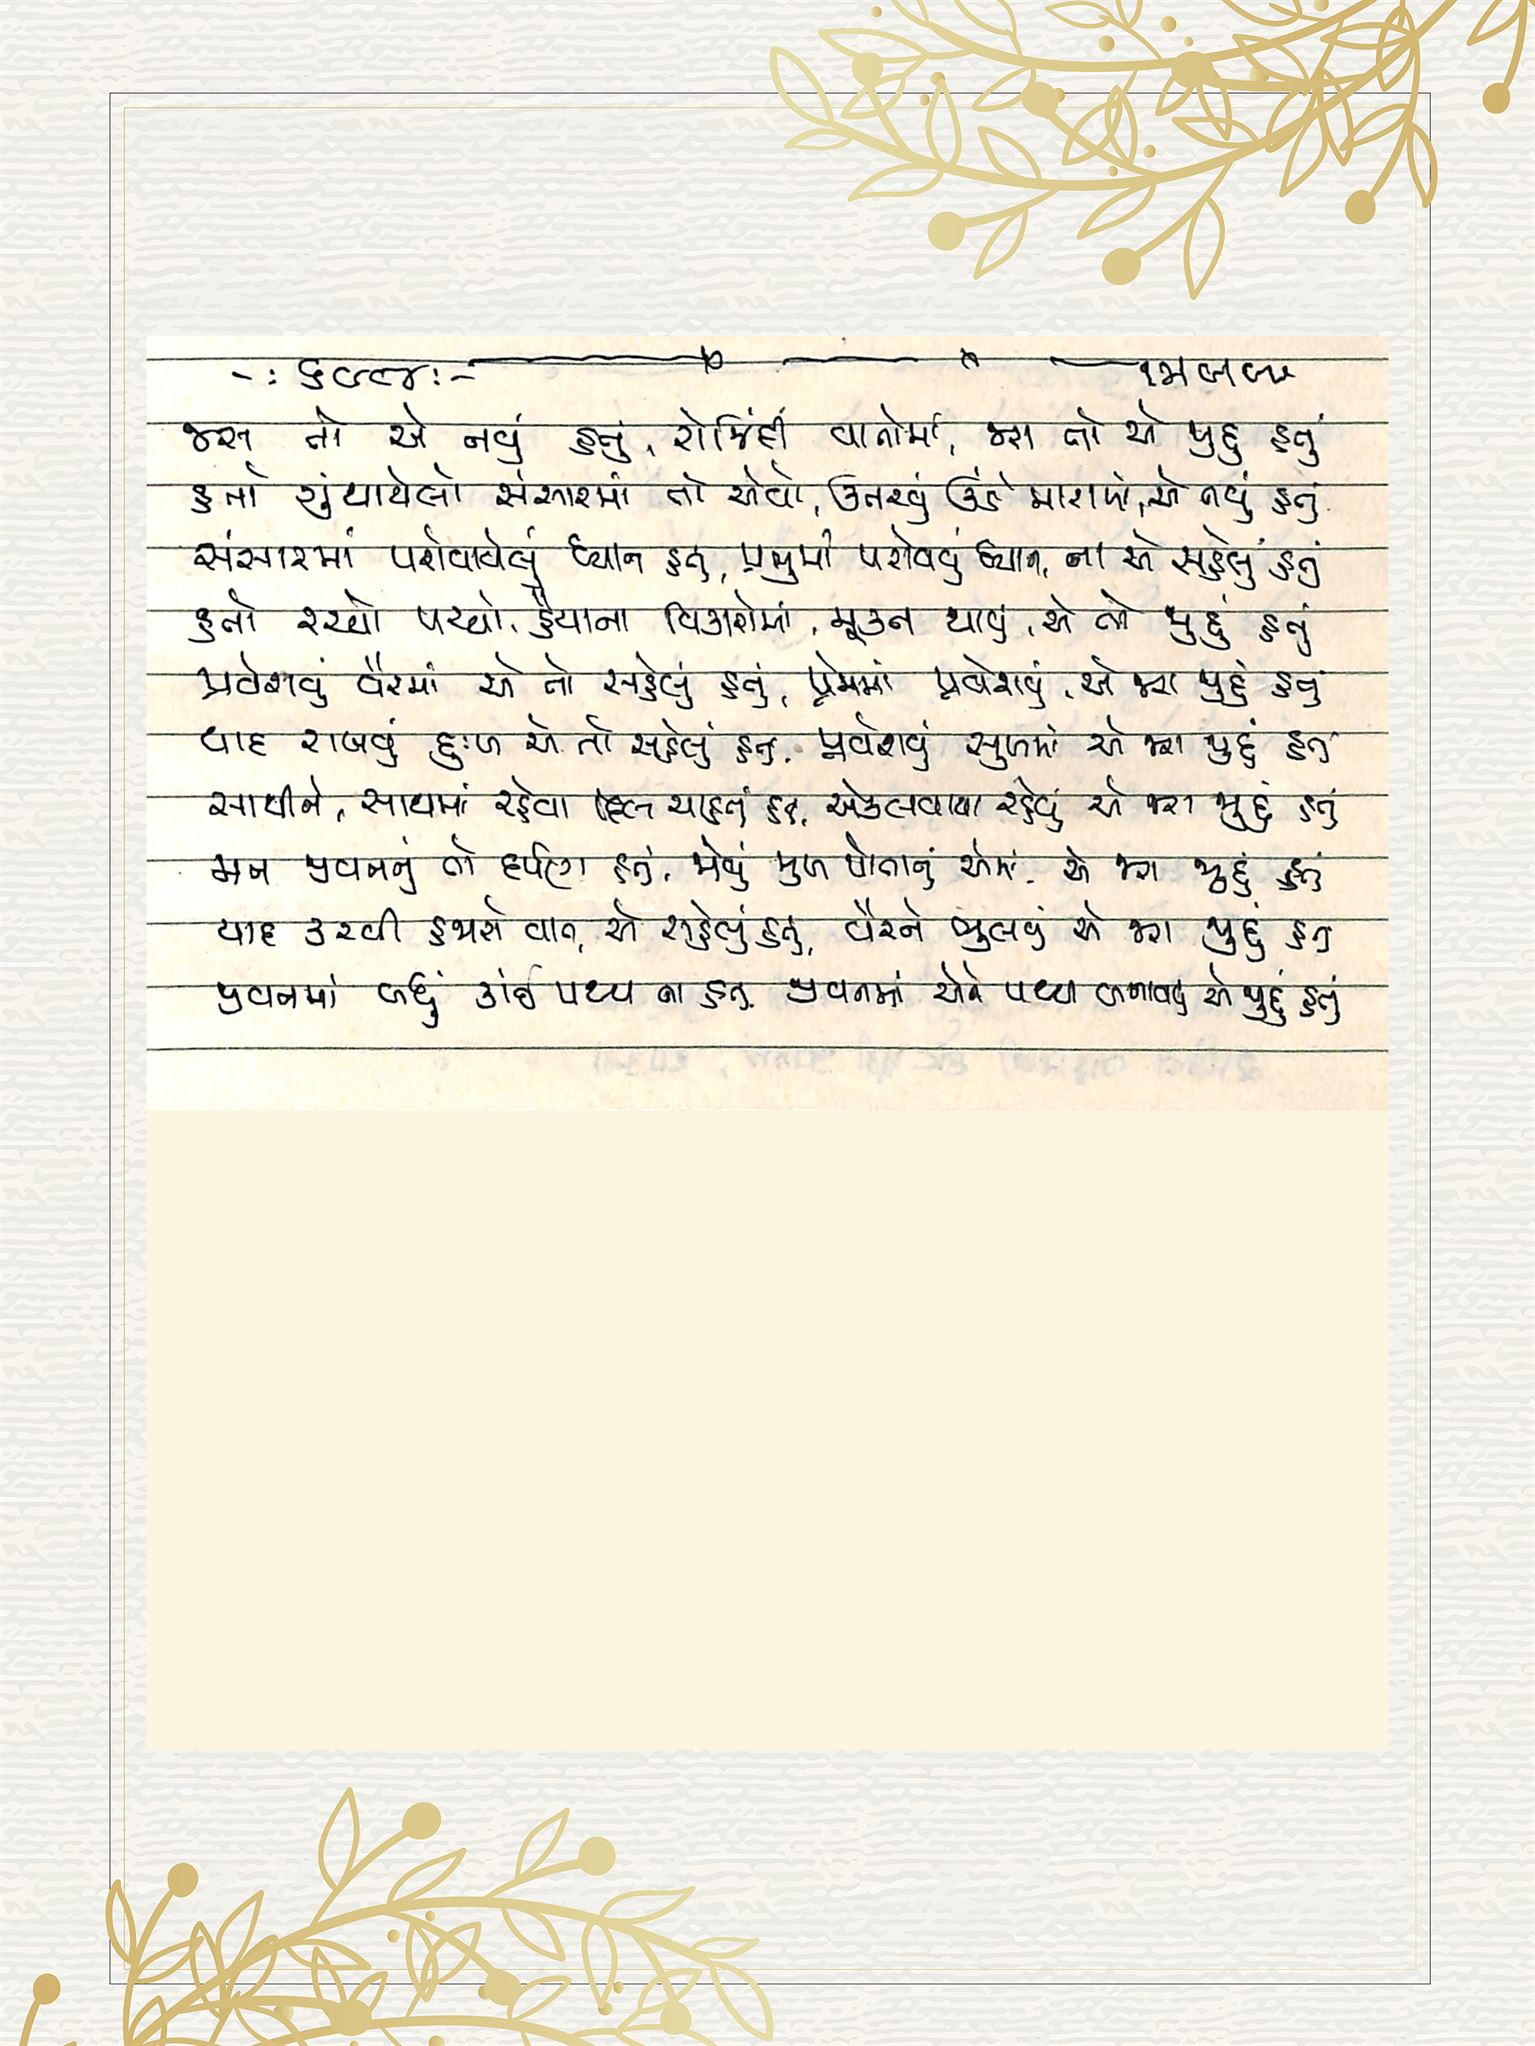 જરા તો એ નવું હતું, રોજિંદી વાતોમાં, જરા તો એ જુદું હતું
હતો ગુંથાયેલો સંસારમાં તો એવો, ઉતરવું ઊંડે મારામાં, એ નવું હતું
સંસારમાં પરોવાયેલું ધ્યાન હતું, પ્રભુમાં પરોવવું ધ્યાન, ના એ સહેલું હતું
હતો રચ્યો પચ્યો, હૈયાના વિકારોમાં, મૂક્ત થાવું, એ તો જુદું હતું
પ્રવેશવું વૈરમાં એ તો સહેલું હતું, પ્રેમમાં પ્રવેશવું, એ જરા જુદું હતું
યાદ રાખવું દુઃખ એ તો સહેલું હતું. પ્રવેશવું સુખમાં એ જરા જુદું હતું
સાથીને, સાથમાં રહેવા દિલ ચાહતું હતું, એકલવાયા રહેવું એ જરા જુદું હતું
મન જીવનનું તો દર્પણ હતું, જોવું મુખ પોતાનું એમાં. એ જરા જુદું હતું
યાદ કરવી હજારો વાત, એ સહેલું હતું, વૈરને ભુલવું એ જરા જુદું હતું
જીવનમાં બધું કાંઈ પથ્ય ના હતું. જીવનમાં એને પથ્ય બનાવવું એ જુદું હતું